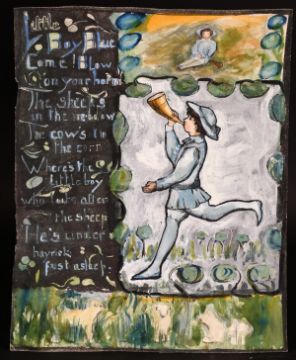 Little
Boy Blue
Come! Blow
on your horn
The sheep's
in the meadow
The cow's in
the corn
Where's the
little boy
who looks after
the sheep
He's under
hayrick
fast asleep.